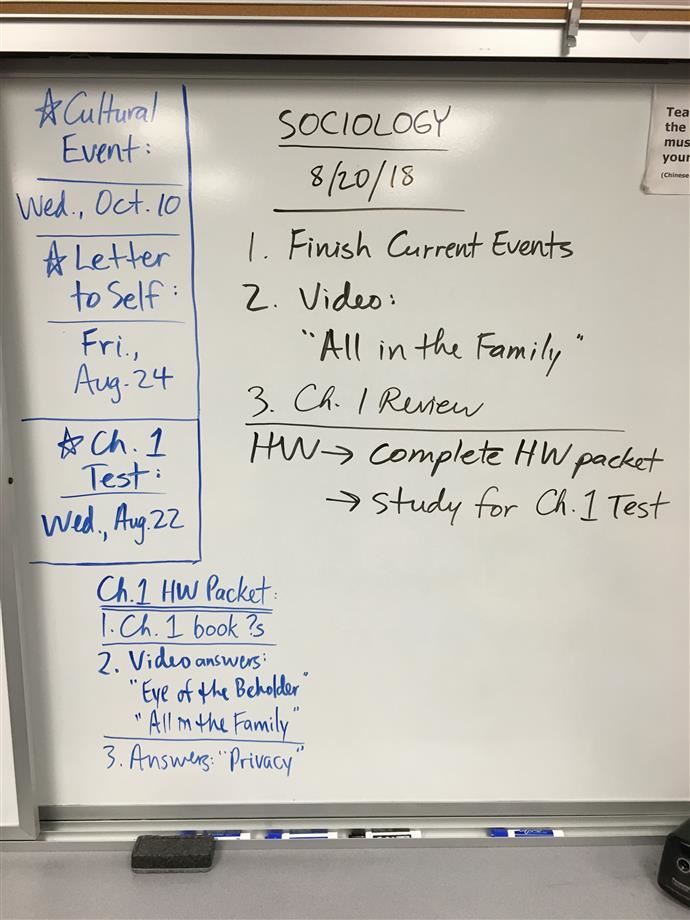 ☆ Cultural
Event:
Wed., Oct. 10
☆ Letter
to Self:
Fri.,
Aug. 24
☆ Ch. 1
Test:
Wed., Aug. 22
Ch. 1 HW Packet:
1. Ch. 1 book ?s
2. Video answers:
"Eye of the Beholder"
"All in the Family"
3. Answers: "Privacy"
SOCIOLOGY
8/20/18
1. Finish Current Events
2. Video:
"All in the Family"
3. Ch. 1 Review
HW → complete HW packet
→ study for Ch. 1 Test
Tea
the
mus
your
(Chinese